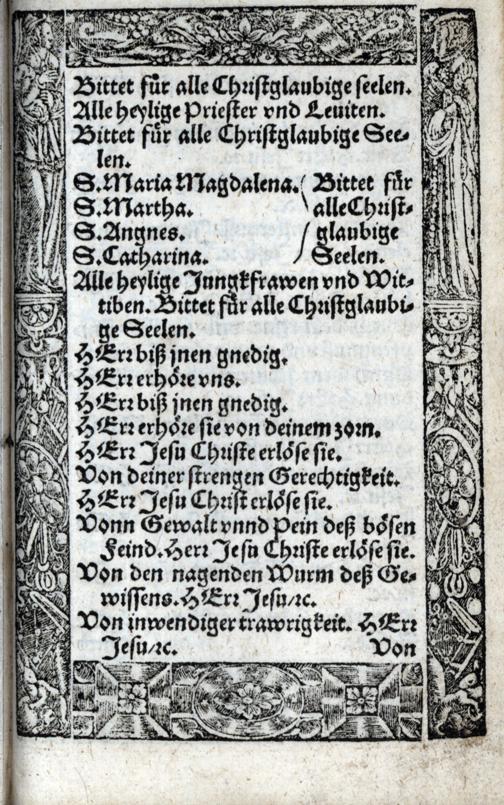 Bittet für alle Christglaubige seelen.
Alle heylige Priester vnd Leuiten.
Bittet für alle Christglaubige See-
len.
S. Maria Magdalena. ( Bittet für
S. Martha. \ alle Christ-
S. Angnes. / glaubige
S. Catharina. / Seelen.
Alle heylige Jungkfrawen vnd Wit-
tiben. Bittet für alle Christglaubi-
ge Seelen.
HErr biß jnen gnedig.
HErr erhöre vns.
HErr biß jnen gnedig.
HErr erhöre sie von deinem zorn.
HErr Jesu Christe erlöse sie.
Von deiner strengen Gerechtigkeit.
HErr Jesu Christ erlöse sie.
Vonn Gewalt vnnd Pein deß bösen
Feind. Herr Jesu Christe erlöse sie.
Von den nagenden Wurm deß Ge-
wissens. HErr Jesu/ꝛc.
Von inwendiger trawrigkeit. HErr
Jesu/ꝛc. Von